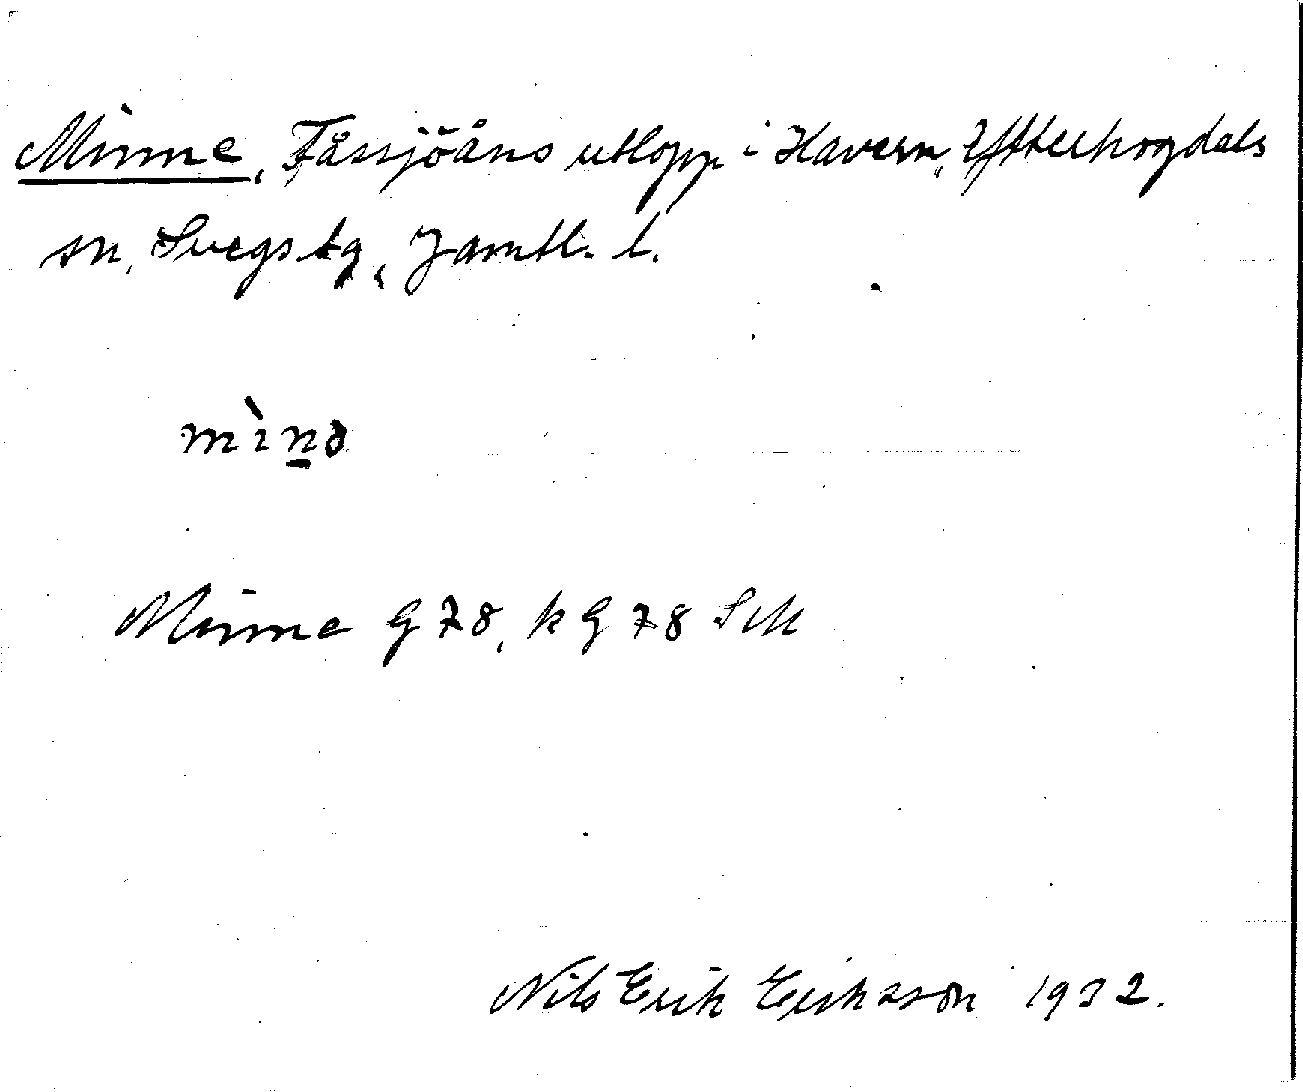 Minne, Fåssjöåns utlopp i Havern, Ytterhogdals
sn, Svegs tg, Jämtl. l.
mìn̲ə
Minne G 78, k G 78 Sck
Nils Erik Eriksson 1932.